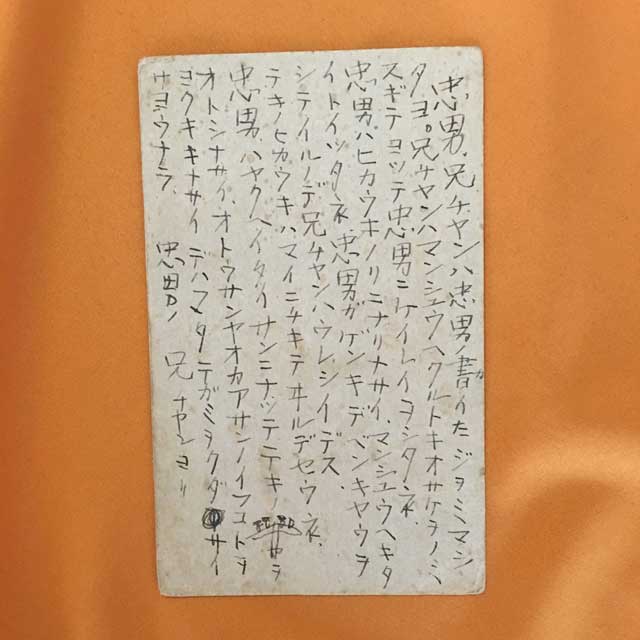 忠男、兄チヤンハ忠男ノ書イたジヲミマシ
タヨ。兄チヤンハマンシユウヘクルトキオサケヲノミ
スギテヨツテ忠男ニケイレイヲシタネ、
忠男ハヒカウキノリニナリナサイ、マンシユウヘキタ
イトイツタネ、忠男ガゲンキデベンキヤウヲ
シテイルノデ兄チヤンハウレシイデス、
テキノヒカウキハマイニチキテヰルデセウネ、
忠男ハヤクヘイタイサンニナツテテキノヲ
オトシナサイ、オトウサンヤオカアサンノイフコトヲ
ヨクキキナサイ デハマタテガミヲクダサイ
サヨウナラ 忠男ノ兄チヤンヨリ